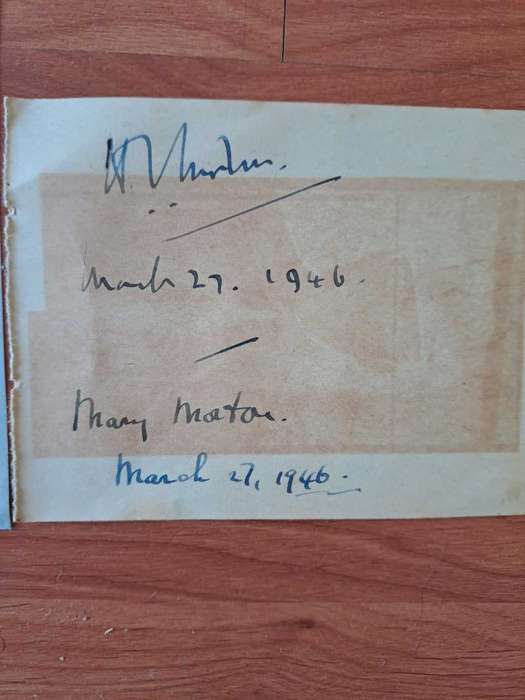 H.V. Morton.
March 27. 1946.
Mary Morton.
March 27, 1946.